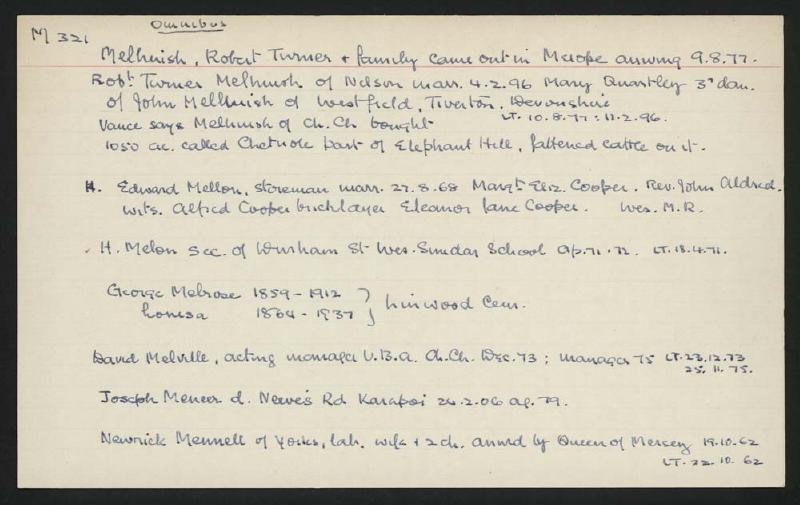 Omnibus
M 321
Melhuish, Robert Turner + family came out in Merope arriving 9.8.77.
Robt. Turner Melhuish of Nelson marr. 4.2.96 Mary Quartley 3rd dau.
of John Mellhuish of Westfield, Tiverton, Devonshire
LT. 10.8.77 : 11.2.96.
Vance says Melhuish of Ch.Ch bought
1050 ac. called Chetnole part of Elephant Hill, fattened cattle on it.
H. Edward Mellon, storeman marr. 27.8.68 Margt Eliz. Cooper. Rev. John Aldred.
wits. Alfred Cooper bricklayer Eleanor Jane Cooper. Wes. M.R.
H. Melon sec. of Durham St Wes. Sunday School ap. 71. 72. LT. 18.4.71.
George Melrose 1859 - 1912 } Linwood Cem.
Louisa 1864 - 1937
David Melville, acting manager U.B.A. Ch.Ch. Dec. 73 ; manager 75 LT. 23.12.73
25. 11. 75.
Joseph Meneer d. Neeve's Rd Kaiapoi 24.2.06 ag. 79.
Newrick Mennell of Yorks, lab. wife + 2 ch. arrivd by Queen of Mersey 19.10.62
LT. 22. 10. 62